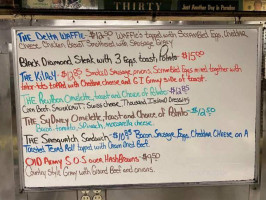 THIRTY
Just Another Day in Paradise
THE Delta WAFFle $12.50 WAFFles topped with Scrambled Eggs, Cheddar
Cheese, Chicken Breast Smothered with Sausage Gravy
Black Diamond Steak with 3 eggs, toast, Potato $15.50
THE KILAY $13.95 Smoked Sausage, onions, Scrambled Eggs mixed together with
tator tots topped with Cheddar cheese and G.I Gravy side of toast.
THE Reuben Omelette, toast and Choice of Potato $12.95
Corn beef, Sauerkraut, Swiss cheese, Thousand Island Dressing
THE SyDney Omelette, toast and Choice of Potato $12.50
bacon, tomato, Spinach, mozzarella cheese
THE Sandwich $10.95 Bacon, Sausage, Eggs, Cheddar CHeese on A
Toasted Texas ToAst topped with
OlD Army S.O.S over HashBrowns $9.50
Country Style Gravy with Ground Beef and onions.